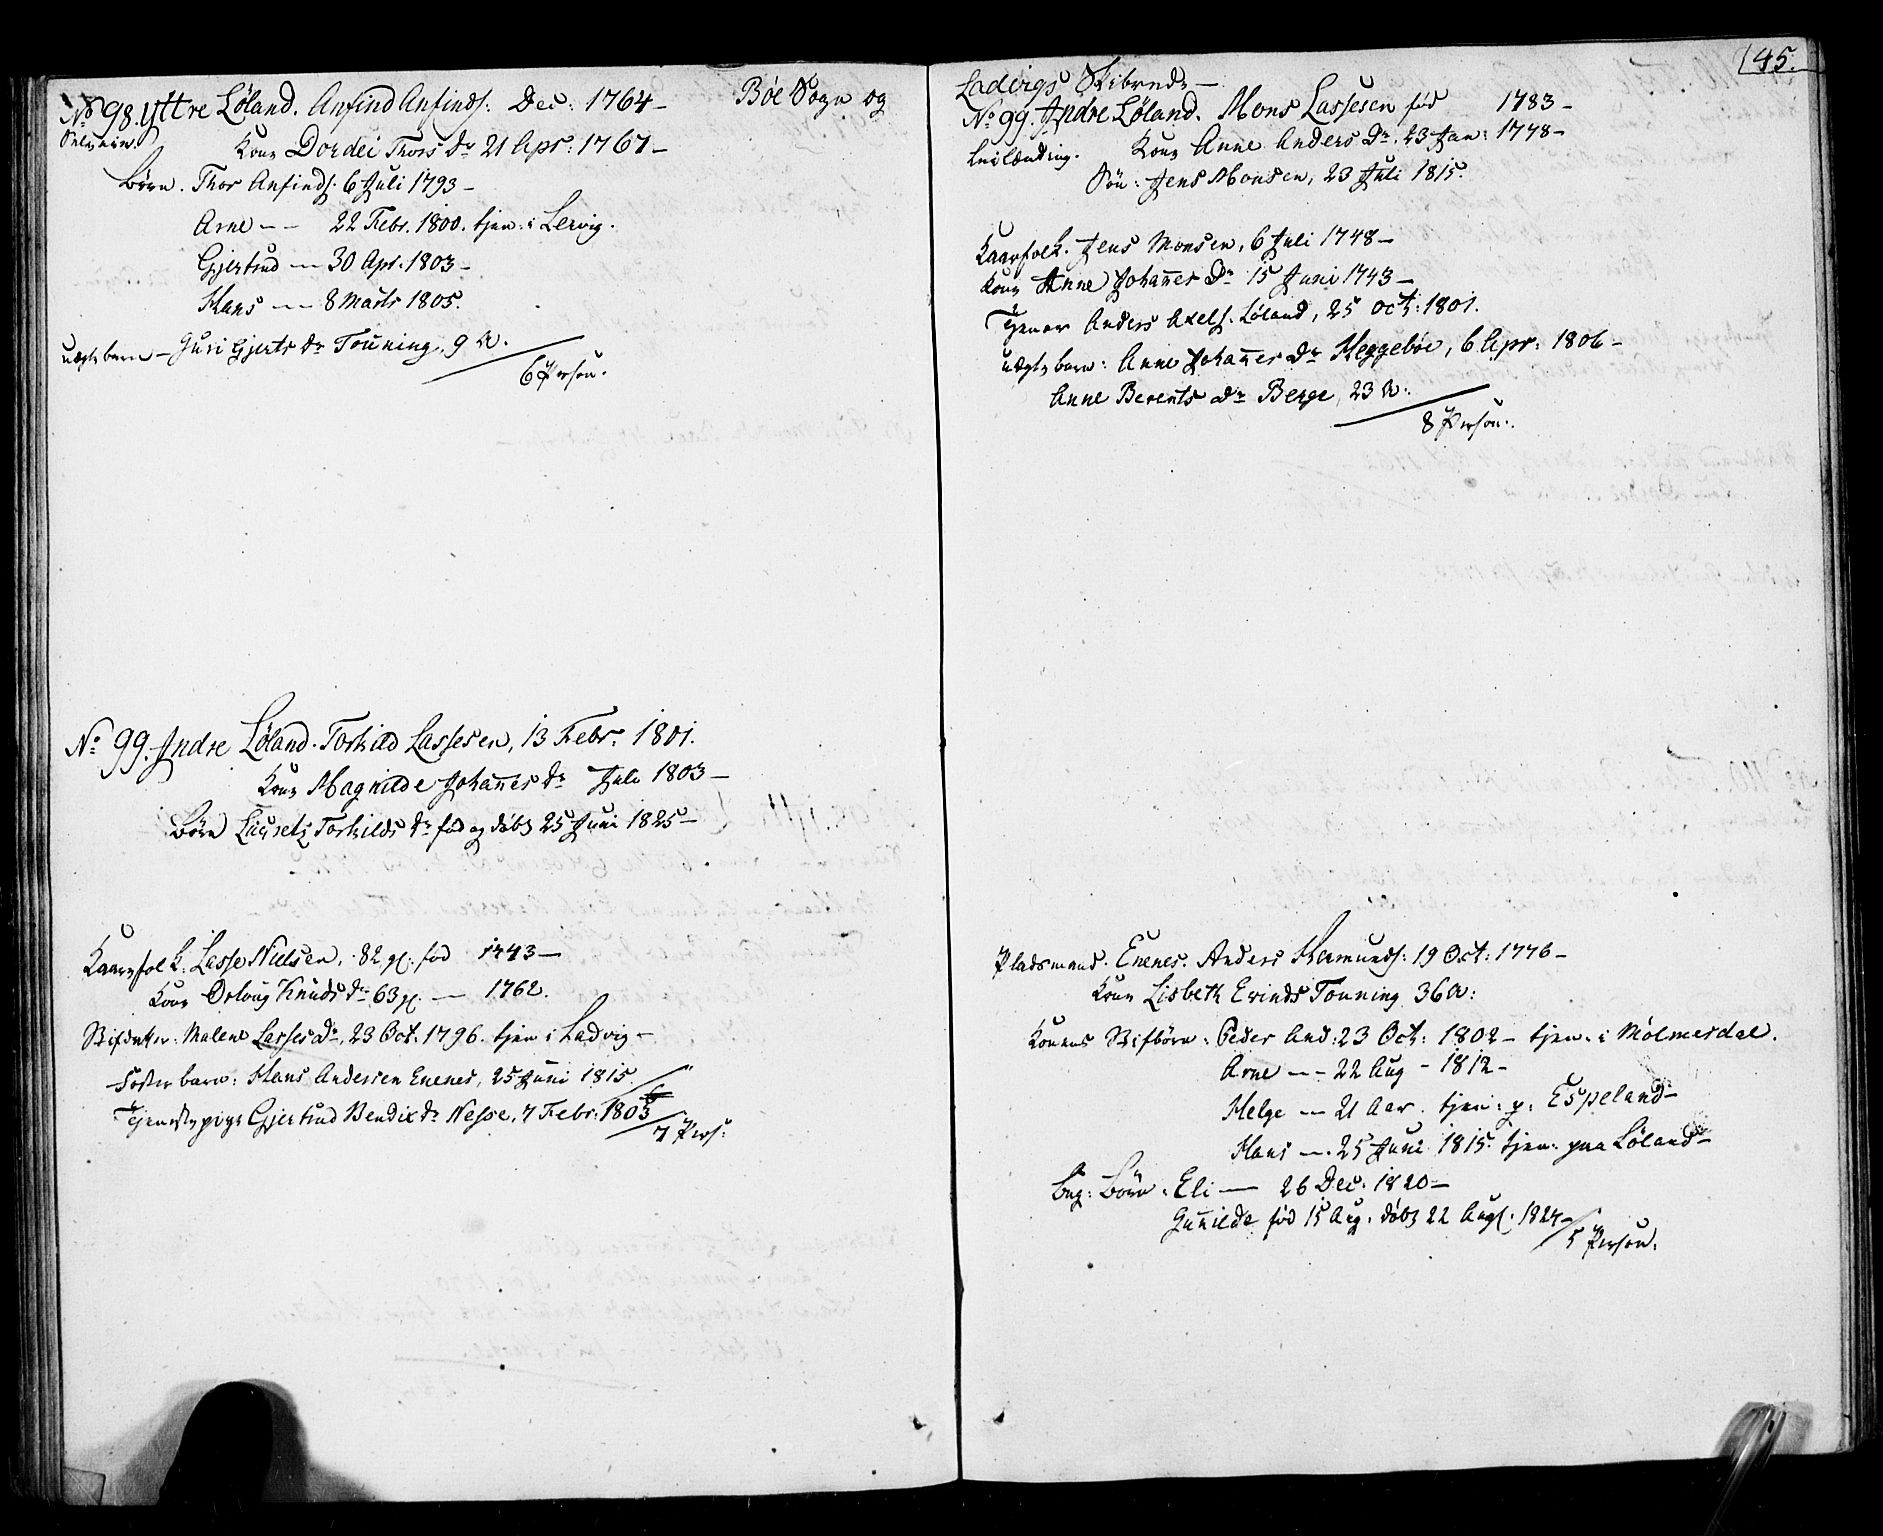 Bøe Sogn og
No 98. Yttre Løland. Anfind Anfinds: Dec: 1764 -
Selveier.
Kone Dordei Thors Dr 21 Apr: 1767 -
Børn. Thor Anfinds: 6 Juli 1793 -
Arne - - 22 Febr. 1800. tjen: i Lervig.
Gjertrud - 30 Apr. 1803 -
Hans - 8 Marts 1805.
uægte barn - Guri Gjerts Dr Touning, 9 A.
6 Person.
No 99. Indre Løland. Torkild Lassesen, 13 Febr. 1801.
Kone Magnilde Johannes Dr Juli 1803 -
Børn Lauretz Torkilds Dr fød og døbt 25 Juni 1825 -
Kaarfolk. Lasse Nielsen, 82 gl. fød 1743 -
Kone Orloug Knuds Dr 63 gl. - 1762.
Stifdatter: Malene Lasses Dr, 23 Oct. 1796. tjen i Ladvig -
Foster barn: Hans Andersen Enenes, 25 Juni 1815.
Tjeneste pige Gjertrud Bendix Dr Nesse, 7 Febr. 1803
7 Pers:
45.
Ladvigs Skibrede -
No 99. Indre Løland. Mons Lassesen fød 1783 -
Leilænding. Kone Anne Anders Dr. 23 Jan: 1778 -
Søn: Jens Monsen, 23 Juli 1815.
Kaarfolk. Jens Monsen, 6 Juli 1748 -
Kone Anne Johannes Dr 15 Juni 1743 -
Tjener Anders Axels. Løland, 25 Oct: 1801.
uægte barn: Anne Johannes Dr Heggebøe, 6 Apr: 1806 -
Anne Berents Dr Berge, 23 A:
8 Person.
Pladsmand. Enenes. Anders Hermunds: 19 Oct: 1776 -
Kone Lisbeth Erinds Touning 36 A:
Konens Stifbørn: Peder And: 23 Oct: 1802 - tjen: i Mølmesdal.
Arne - - 22 Aug - 1812 -
Helge - 21 Aar. tjen: p. Espeland -
Hans - 25 Juni 1815. tjen: paa Løland -
beg: Børn: Eli - 26 Dec: 1820 -
Gunnilde fød 15 Aug: døbt 22 Aug: 1824 -
5 Person.